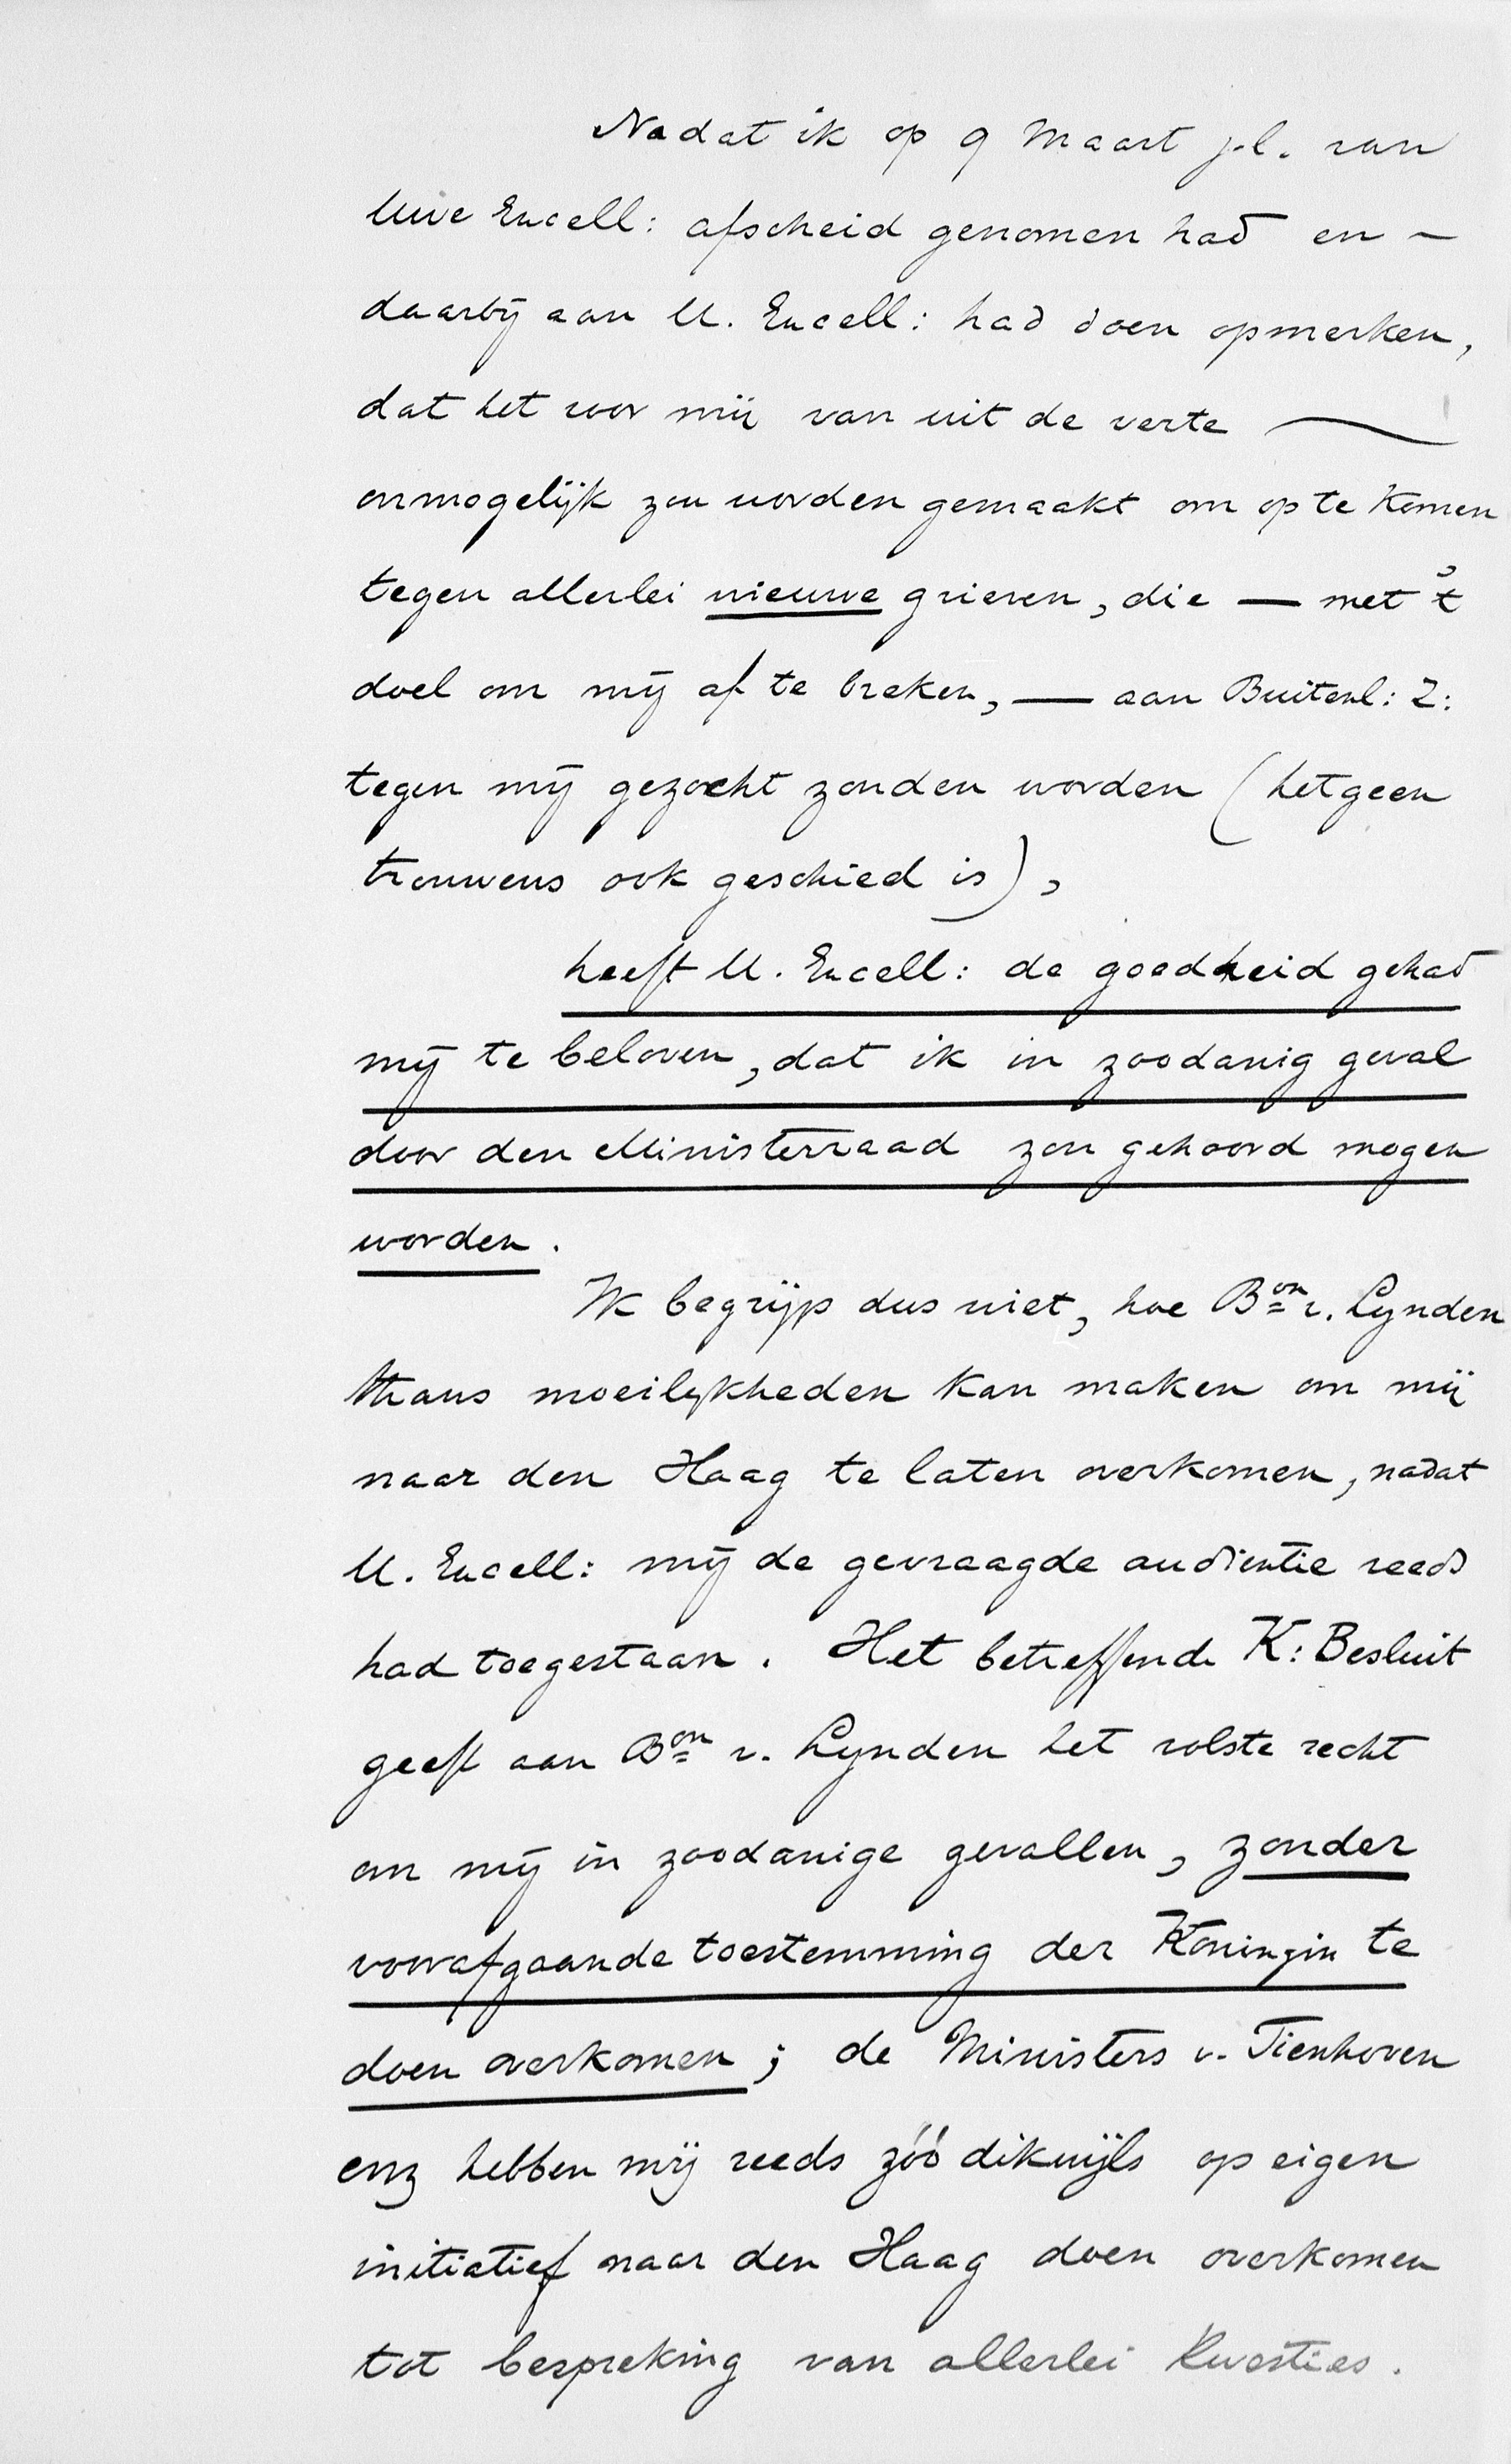 Nadat ik op 9 Maart j.l. van
Uwe Excell: afscheid genomen had en –
daarbij aan U. Excell: had doen opmerken,
dat het voor mij van uit de verte —
onmogelijk zou worden gemaakt om op te komen
tegen allerlei nieuwe grieven, die — met 't
doel om mij af te breken, — aan Buitenl: Z:
tegen mij gezocht zouden worden (hetgeen
trouwens ook geschied is),
heeft U. Excell: de goedheid gehad
mij te beloven, dat ik in zoodanig geval
door den Ministerraad zou gehoord mogen
worden.
Ik begrijp dus niet, hoe Bon v. Lynden
thans moeilijkheden kan maken om mij
naar den Haag te laten overkomen, nadat
U. Excell: mij de gevraagde audientie reeds
had toegestaan. Het betreffende K: Besluit
geeft aan Bon v. Lynden het volste recht
om mij in zoodanige gevallen, zonder
voorafgaande toestemming der Koningin te
doen overkomen; de Ministers v. Tienhoven
enz hebben mij reeds zóó dikwijls op eigen
initiatief naar den Haag doen overkomen
tot bespreking van allerlei kwesties.